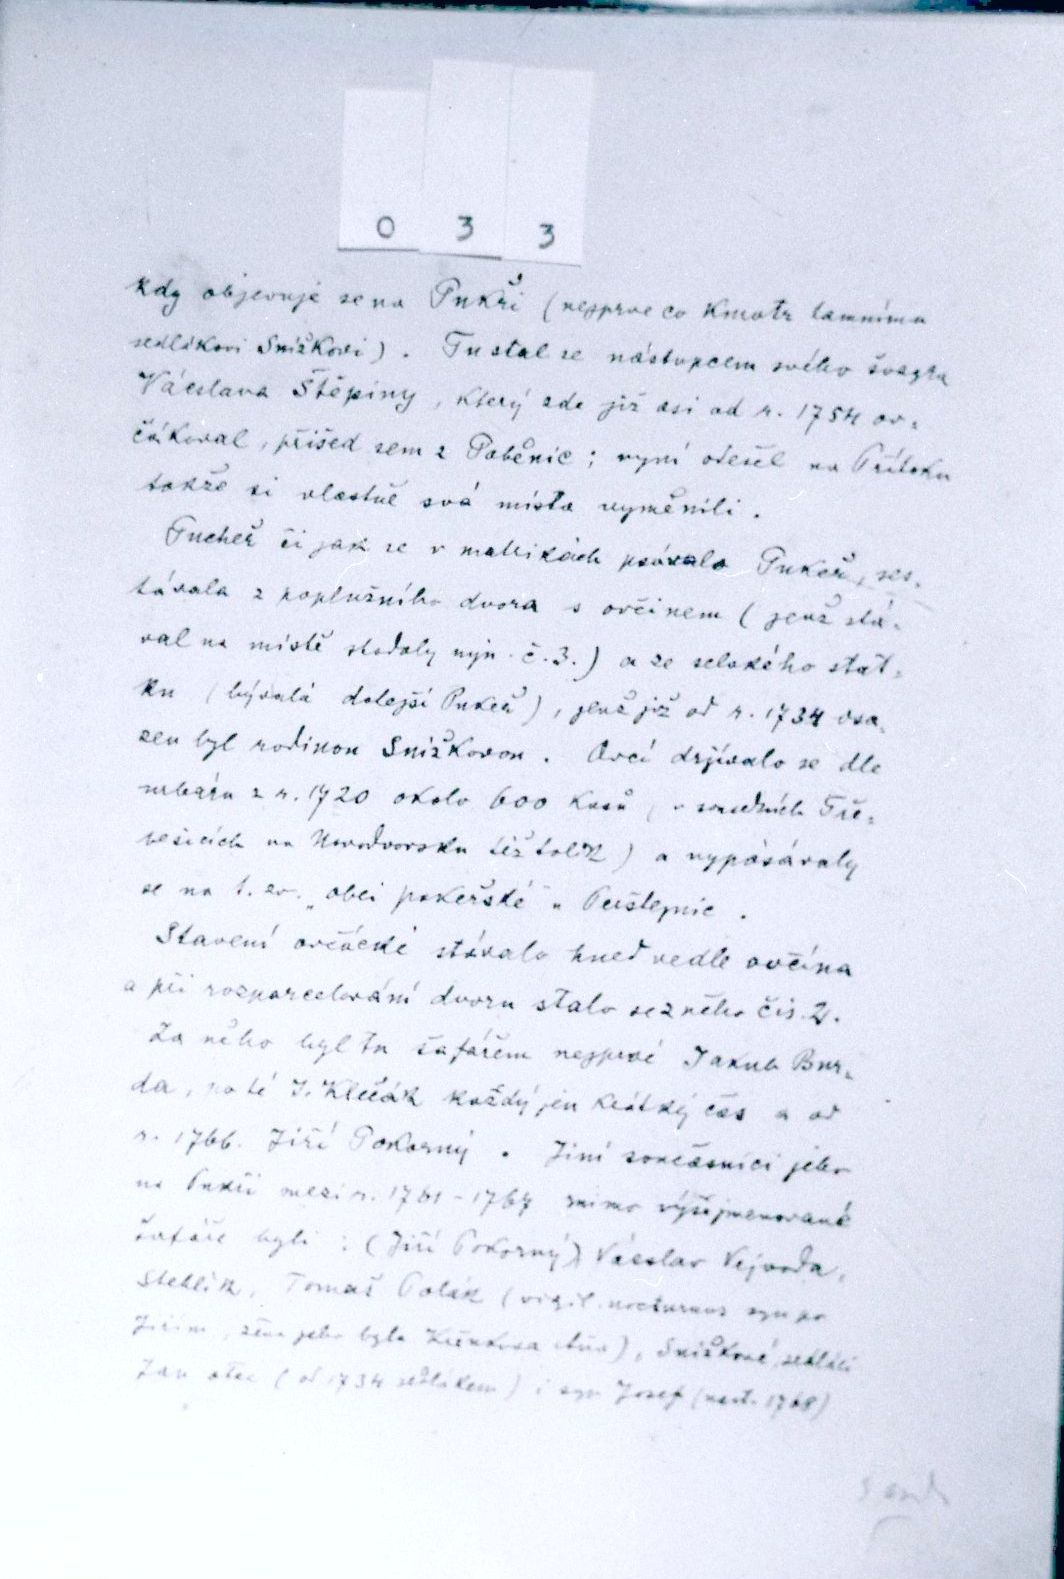 0 3 3
kdy objevuje se na Pukři (nejprve co kmotr tamnímu
sedlákovi Snížkovi). Tu stal se nástupcem svého švagra
Václava Štěpiny, který zde již asi od r. 1754 ov-
čákoval, přišed sem z Paběnic; nyní odešel na Přítoku
takže si vlastně svá místa vyměnili.
Pucheř či jak se v matrikách psávalo Pukeř, ses-
távala z poplužního dvora s ovčínem (jenž stá-
val na místě stodoly nyn. č. 3.) a ze selského stat-
ku (bývalá dolejší Pukeř), jenž již od r. 1734 osa-
zen byl rodinou Snížkovou. Ovcí držívalo se dle
urbáru z r. 1720 okolo 600 kusů (v sousedních Tře-
bešicích na Novodvorsku též tolik) a vypásávaly
se na t. zv. „obci pukeřské" Perštejnic.
Stavení ovčácké stávalo hned vedle ovčína
a při rozparcelování dvoru stalo se z něho čís. 2.
Za něho byl tu šafářem nejprvé Jakub Bur-
da, po té J. Klečák každý jen krátký čas a od
r. 1766. Jiří Pokorný. Jiní současníci jeho
na Pukři mezi r. 1761-1767 mimo výšejmenované
šafáře byli: (Jiří Pokorný) Václav Vejvoda,
Stehlík, Tomaš Polák (vigil. nocturnus syn po
Jiřím, žena jeho byla), Snížkové, sedláci
Jan otec (od 1734 sedlákem) i syn Josef (nast. 1768)